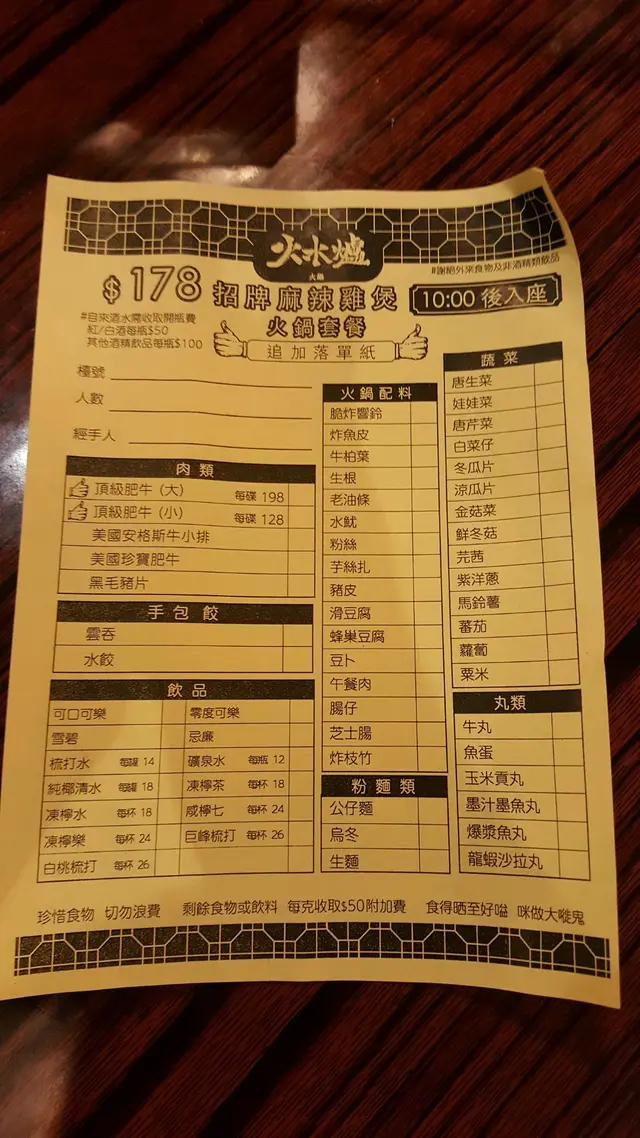 火水爐
火鍋
#謝絕外來食物及非酒精類飲品
$178 招牌麻辣雞煲
火鍋套餐
10:00後入座
追加落單紙
#自來酒水需收取開瓶費
紅/白酒每瓶$50
其他酒精飲品每瓶$100
檯號
人數
經手人
肉類
頂級肥牛（大） 每碟 198
頂級肥牛（小） 每碟 128
美國安格斯牛小排
美國珍寶肥牛
黑毛豬片
手包餃
雲吞
水餃
飲品
可口可樂 零度可樂
雪碧 忌廉
梳打水 每罐 14 礦泉水 每瓶 12
純椰清水 每罐 18 凍檸茶 每杯 18
凍檸水 每杯 18 咸檸七 每杯 24
凍檸樂 每杯 24 巨峰梳打 每杯 26
白桃梳打 每杯 26
火鍋配料
脆炸響鈴
炸魚皮
牛柏葉
生根
老油條
水魷
粉絲
芋絲扎
豬皮
滑豆腐
蜂巢豆腐
豆卜
午餐肉
腸仔
芝士腸
炸枝竹
粉麵類
公仔麵
烏冬
生麵
蔬菜
唐生菜
娃娃菜
唐芹菜
白菜仔
冬瓜片
涼瓜片
金菇菜
鮮冬菇
芫茜
紫洋蔥
馬鈴薯
蕃茄
蘿蔔
粟米
丸類
牛丸
魚蛋
玉米貢丸
墨汁墨魚丸
爆漿魚丸
龍蝦沙拉丸
珍惜食物 切勿浪費 剩餘食物或飲料 每克收取$50附加費 食得晒至好嗌 咪做大嘥鬼